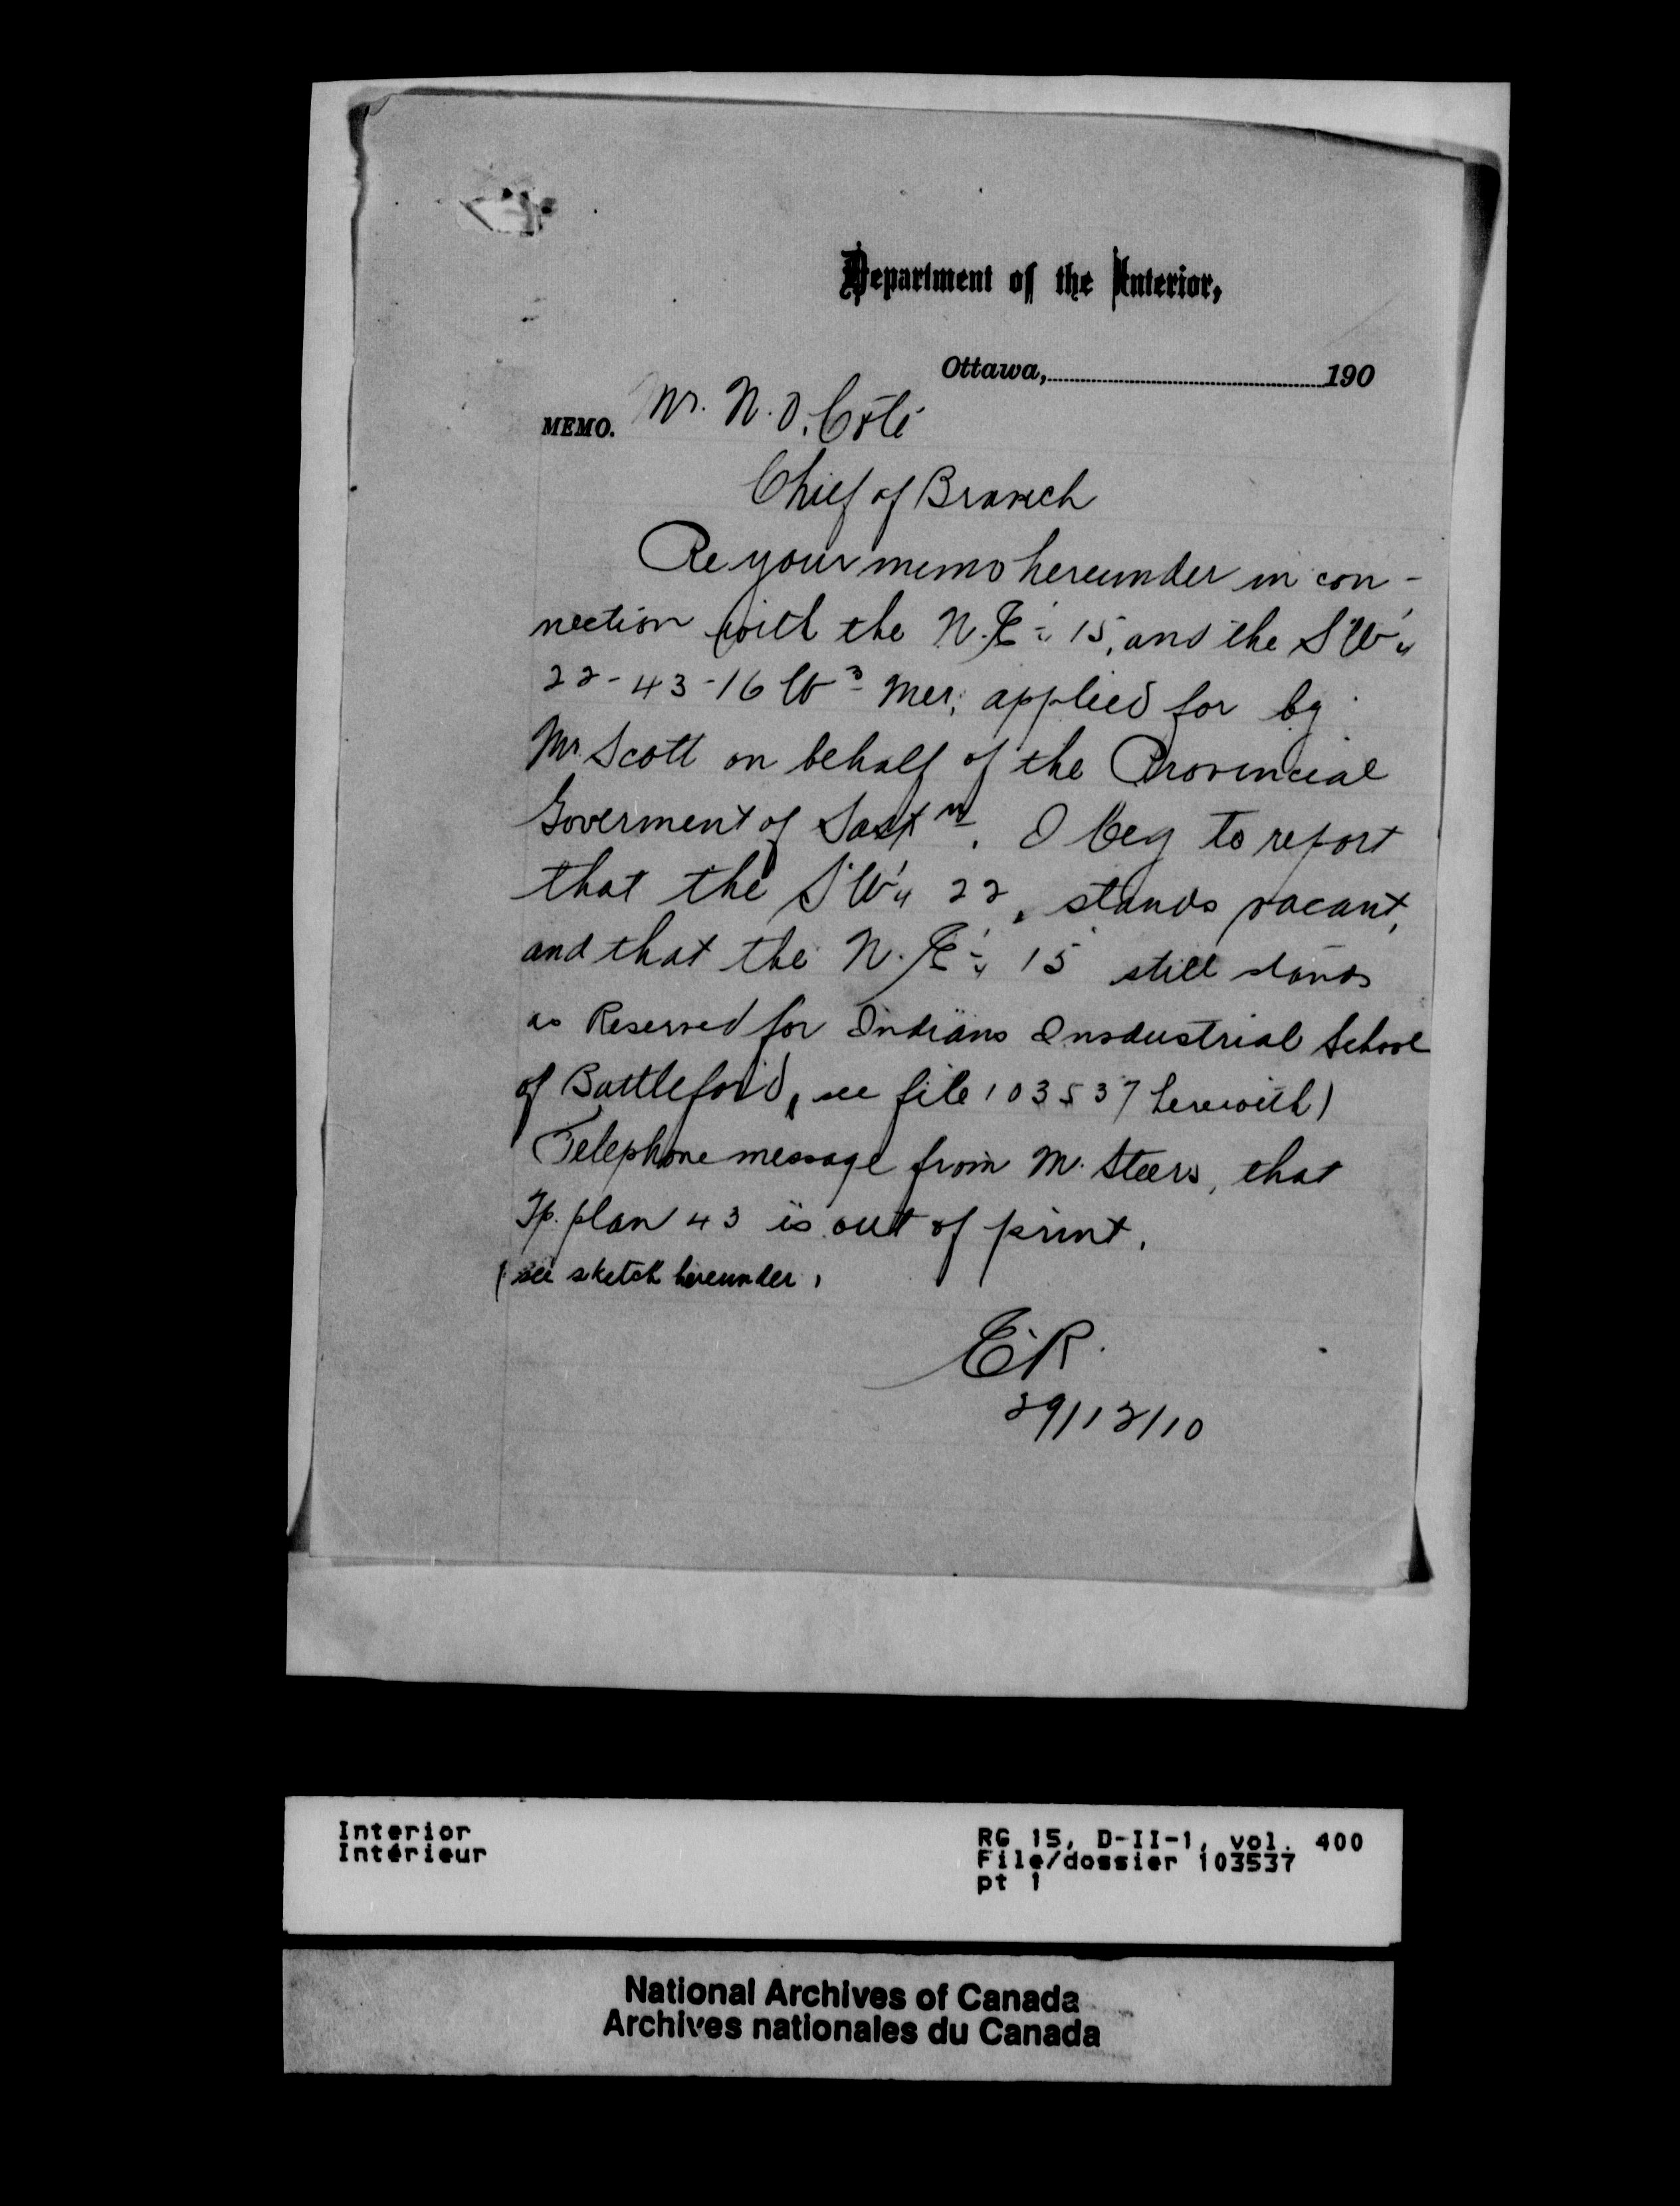 Department of the Interior,
Ottawa,..........................190
MEMO. Mr. N. O. Côté
Chief of Branch
Re your memo hereunder in con-
nection with the N.E ¼ 15, and the SW ¼
22-43-16 W 3 Mer, applied for by
Mr Scott on behalf of the Provincial
Goverment of Sask n. I beg to report
that the SW ¼ 22, stands vacant,
and that the N.E ¼ 15 still stands
as Reserved for Indians Insdustrial School
of Battleford, see file 103537 herewith)
Telephone message from Mr. Steers, that
Tp. plan 43 is out of print.
(see sketch hereunder,
E.R.
29/12/10
Interior
Intérieur
RG 15, D-II-1, vol. 400
File/dossier 103537
pt 1
National Archives of Canada
Archives nationales du Canada